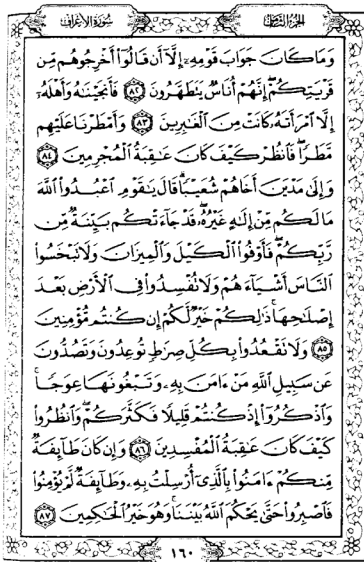 الجزء الثامن
سورة الأعراف
وَمَا كَانَ جَوَابَ قَوْمِهِۦٓ إِلَّآ أَن قَالُوٓا۟ أَخْرِجُوهُم مِّن
قَرْيَتِكُمْ إِنَّهُمْ أُنَاسٌ يَتَطَهَّرُونَ ٨٢ فَأَنجَيْنَٰهُ وَأَهْلَهُۥٓ
إِلَّا ٱمْرَأَتَهُۥ كَانَتْ مِنَ ٱلْغَٰبِرِينَ ٨٣ وَأَمْطَرْنَا عَلَيْهِم
مَّطَرًا فَٱنظُرْ كَيْفَ كَانَ عَٰقِبَةُ ٱلْمُجْرِمِينَ ٨٤
وَإِلَىٰ مَدْيَنَ أَخَاهُمْ شُعَيْبًا قَالَ يَٰقَوْمِ ٱعْبُدُوا۟ ٱللَّهَ
مَا لَكُم مِّنْ إِلَٰهٍ غَيْرُهُۥ قَدْ جَآءَتْكُم بَيِّنَةٌ مِّن
رَّبِّكُمْ فَأَوْفُوا۟ ٱلْكَيْلَ وَٱلْمِيزَانَ وَلَا تَبْخَسُوا۟
ٱلنَّاسَ أَشْيَآءَهُمْ وَلَا تُفْسِدُوا۟ فِى ٱلْأَرْضِ بَعْدَ
إِصْلَٰحِهَا ذَٰلِكُمْ خَيْرٌ لَّكُمْ إِن كُنتُم مُّؤْمِنِينَ
٨٥ وَلَا تَقْعُدُوا۟ بِكُلِّ صِرَٰطٍ تُوعِدُونَ وَتَصُدُّونَ
عَن سَبِيلِ ٱللَّهِ مَنْ ءَامَنَ بِهِۦ وَتَبْغُونَهَا عِوَجًا
وَٱذْكُرُوٓا۟ إِذْ كُنتُمْ قَلِيلًا فَكَثَّرَكُمْ وَٱنظُرُوا۟
كَيْفَ كَانَ عَٰقِبَةُ ٱلْمُفْسِدِينَ ٨٦ وَإِن كَانَ طَآئِفَةٌ
مِّنكُمْ ءَامَنُوا۟ بِٱلَّذِىٓ أُرْسِلْتُ بِهِۦ وَطَآئِفَةٌ لَّمْ يُؤْمِنُوا۟
فَٱصْبِرُوا۟ حَتَّىٰ يَحْكُمَ ٱللَّهُ بَيْنَنَا وَهُوَ خَيْرُ ٱلْحَٰكِمِينَ ٨٧
١٦٠